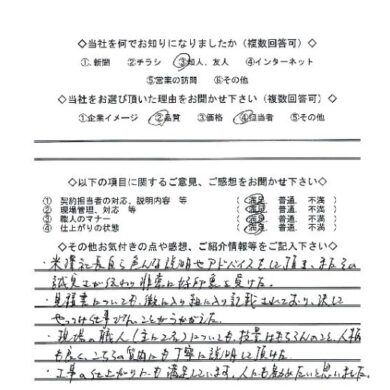 ◇当社を何でお知りになりましたか（複数回答可）◇
①. 新聞 ②チラシ ③知人、友人 ④インターネット
⑤営業の訪問 ⑥その他
◇当社をお選び頂いた理由をお聞かせ下さい（複数回答可）◇
①企業イメージ ②品質 ③価格 ④担当者 ⑤その他
◇以下の項目に関するご意見、ご感想をお聞かせ下さい◇
① 契約担当者の対応、説明内容 等 (満足 普通 不満)
② 現場管理、対応 等 (満足 普通 不満)
③ 職人のマナー (満足 普通 不満)
④ 仕上がりの状態 (満足 普通 不満)
◇その他お気付きの点や感想、ご紹介情報等をご記入下さい◇
・米澤社長自ら色んな説明やアドバイスをして頂き、またその
誠実さが伝わり非常に好印象を受けた。
・見積書についても、微に入り細に入り記載されており、決して
やっつけ仕事でないことがうかがえた。
・現場の職人（主に2名）についても、技量はもちろんのこと、人柄
も良く、こちらの質問にも丁寧に説明して頂けた。
・工事の仕上がりにも満足しています。人にも勧めたいと思いました。